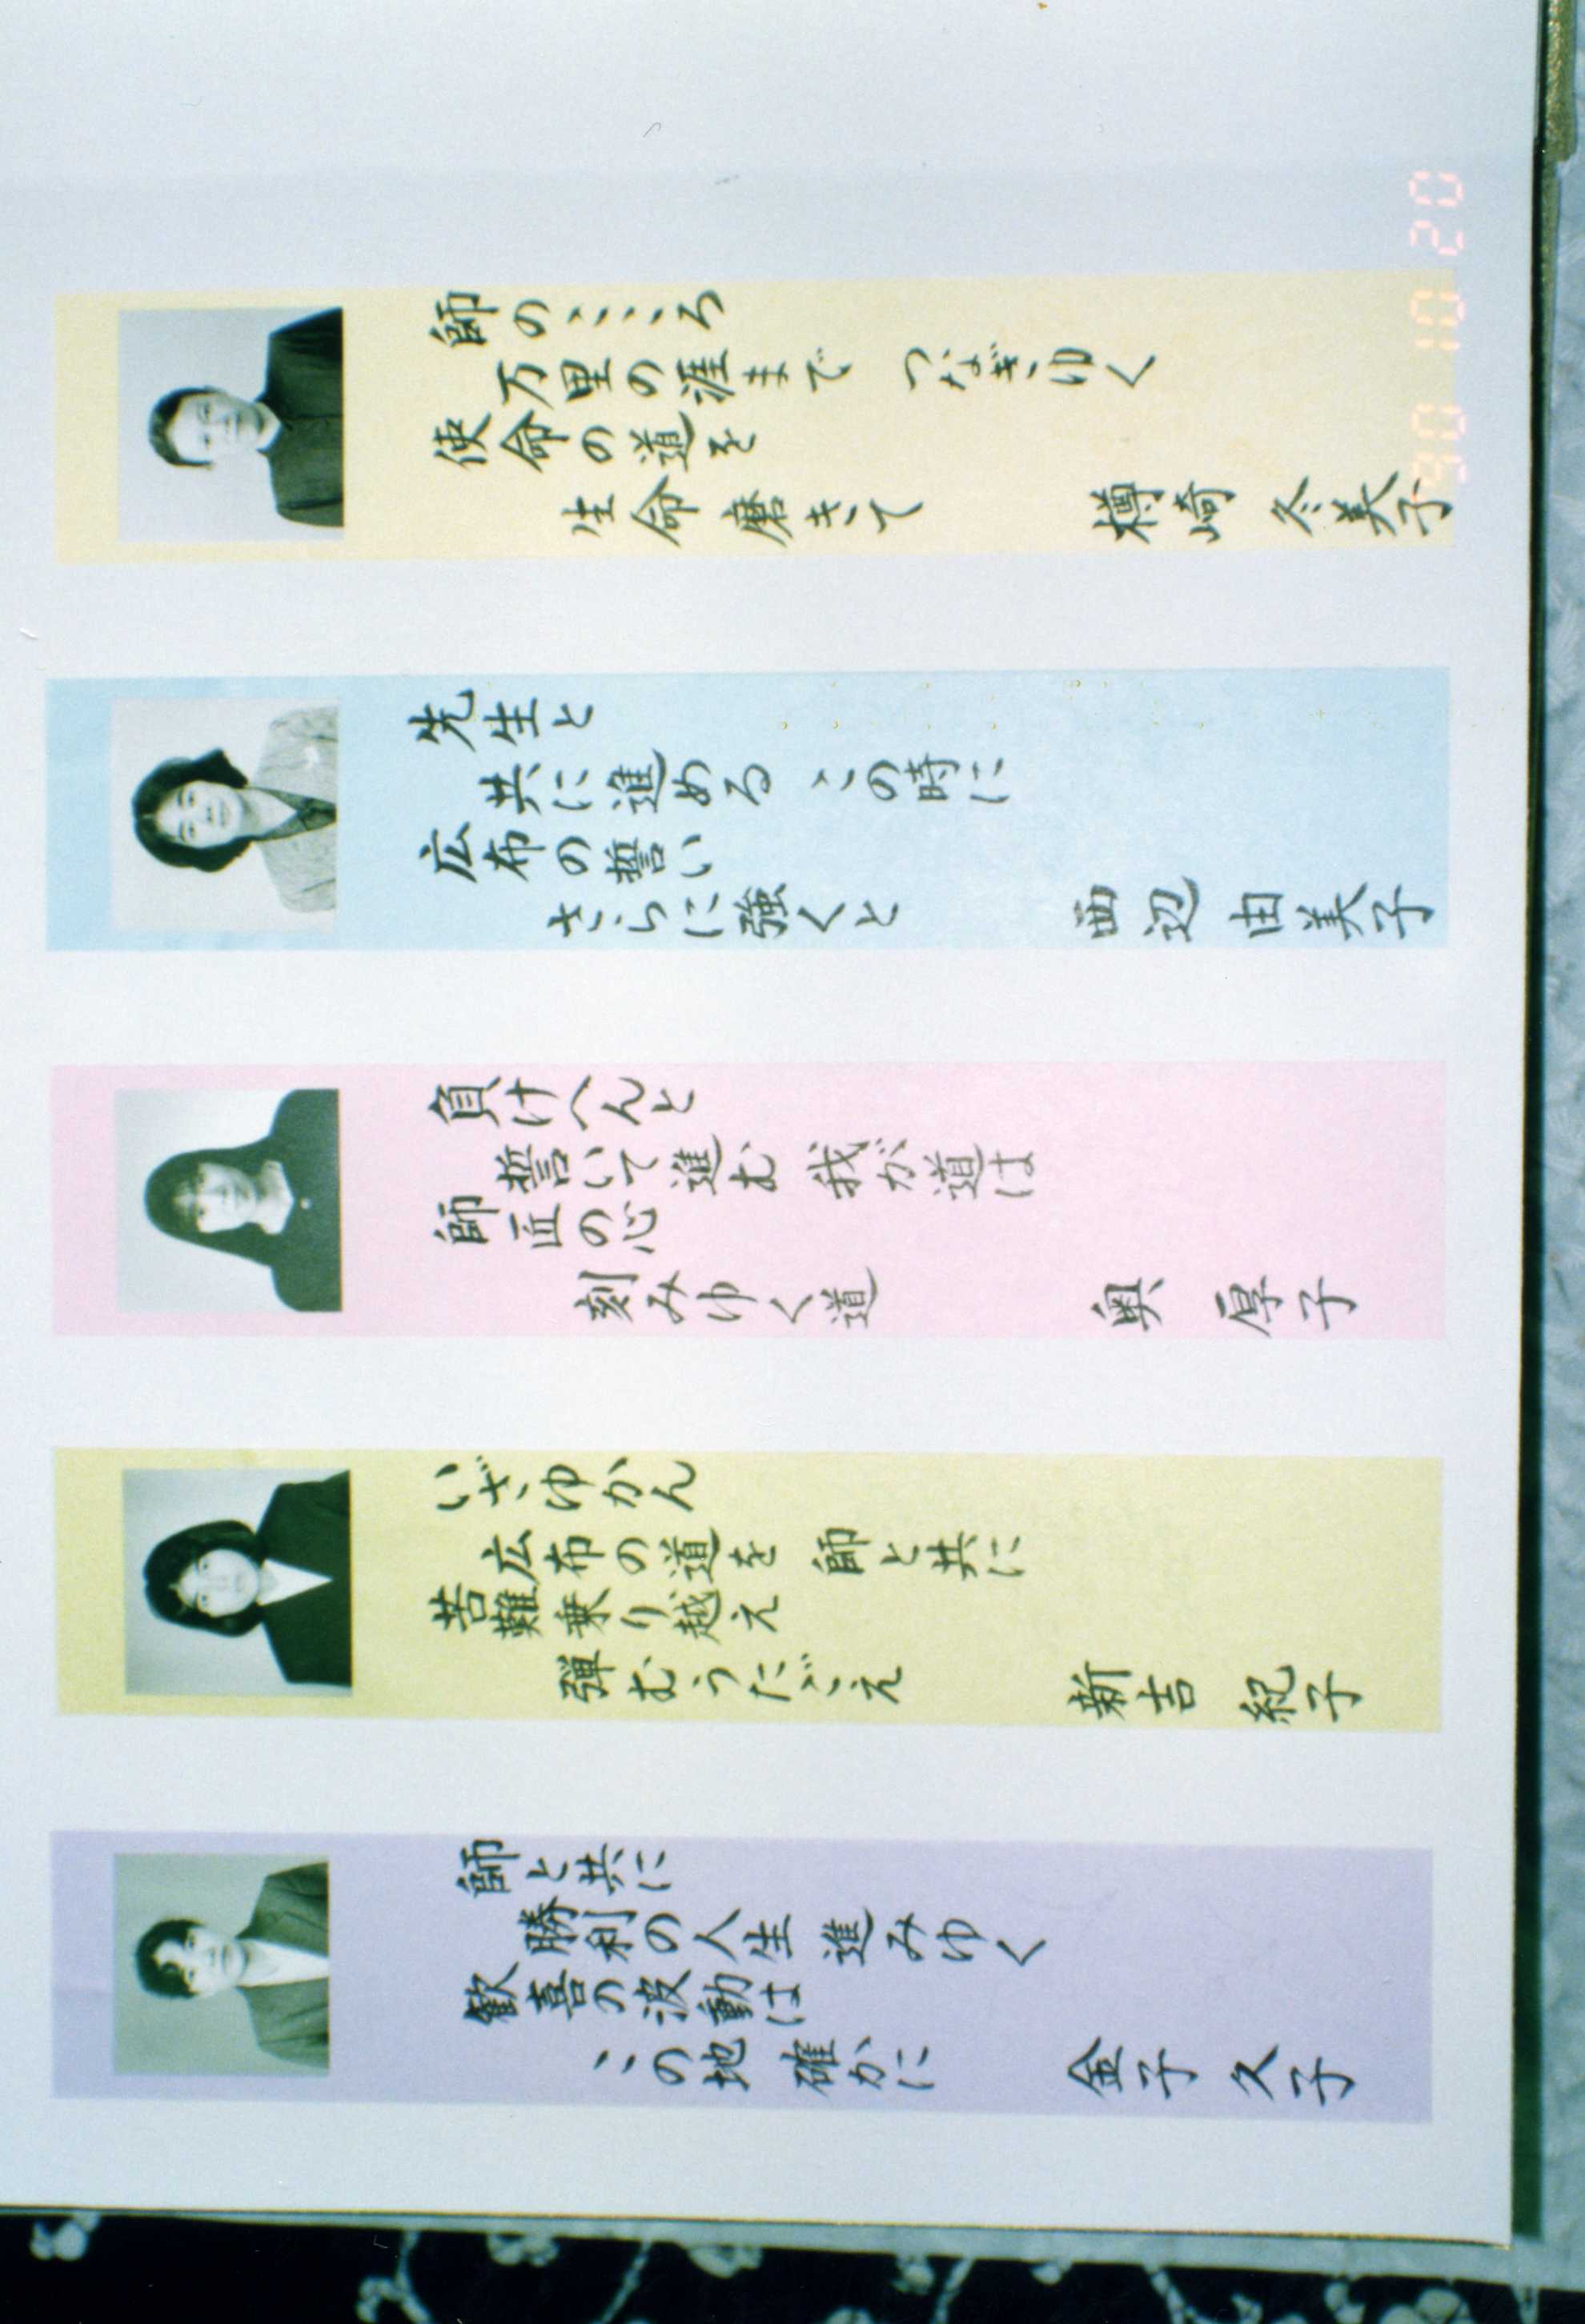 師のこゝろ
万里の涯まで つなぎゆく
使命の道を
生命磨きて
樽崎 冬美子
先生と
共に進める この時に
広布の誓い
さらに強くと
西辺 由美子
負けへんと
誓いて進む 我が道は
師匠の心
刻みゆく道
奥 厚子
いざゆかん
広布の道を 師と共に
苦難乗り越え
弾むうたごえ
新吉 紀子
師と共に
勝利の人生 進みゆく
歓喜の波動は
この地 確かに
金子 久子
'90 10 20